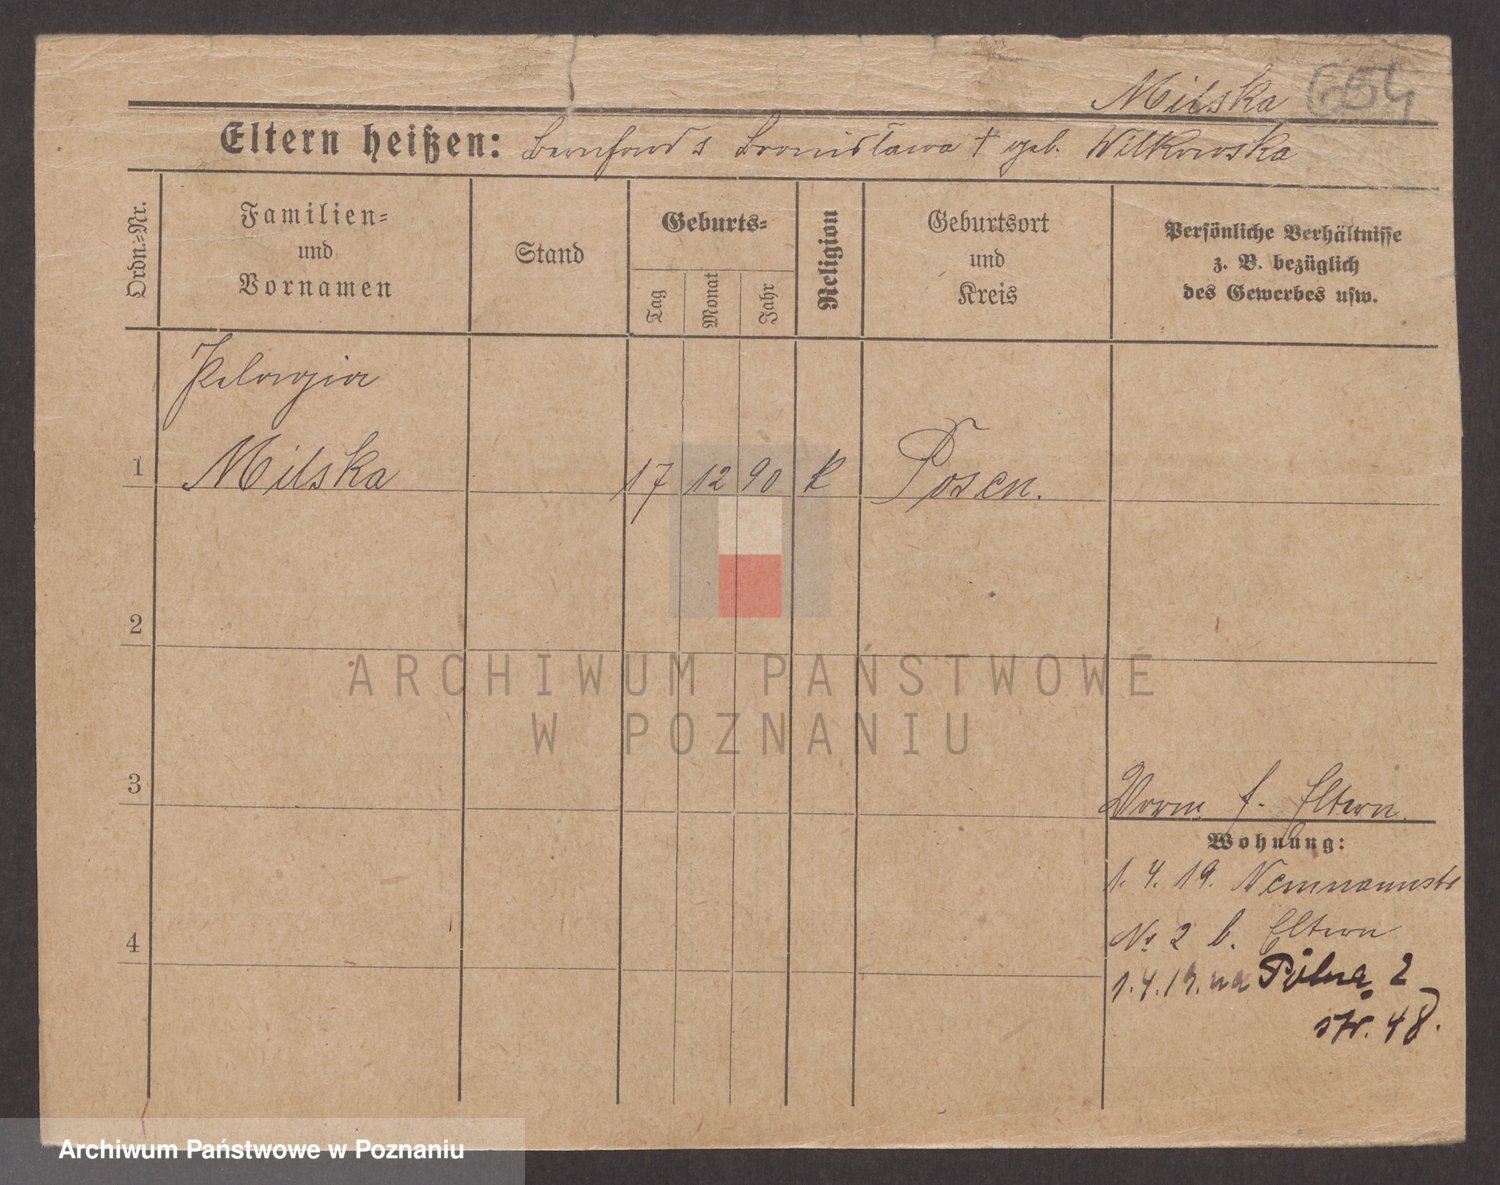 Milska 654
Eltern heißen: Bronisława † geb. Wilkowska
Ordn.=Nr.
Familien=
und
Vornamen
Stand
Geburts=
Tag
Monat
Jahr
Religion
Geburtsort
und
Kreis
Persönliche Verhältnisse
z. B. bezüglich
des Gewerbes usw.
Pelagia
1 Milska 17 12 90 k Posen.
2
3
4
ARCHIWUM PAŃSTWOWE
W POZNANIU
Vorm. f. Eltern.
Wohnung:
1. 4. 19. Naumannstr
No 2 b. Eltern
1.4.19. na Pólna 2
str. 48.
Archiwum Państwowe w Poznaniu